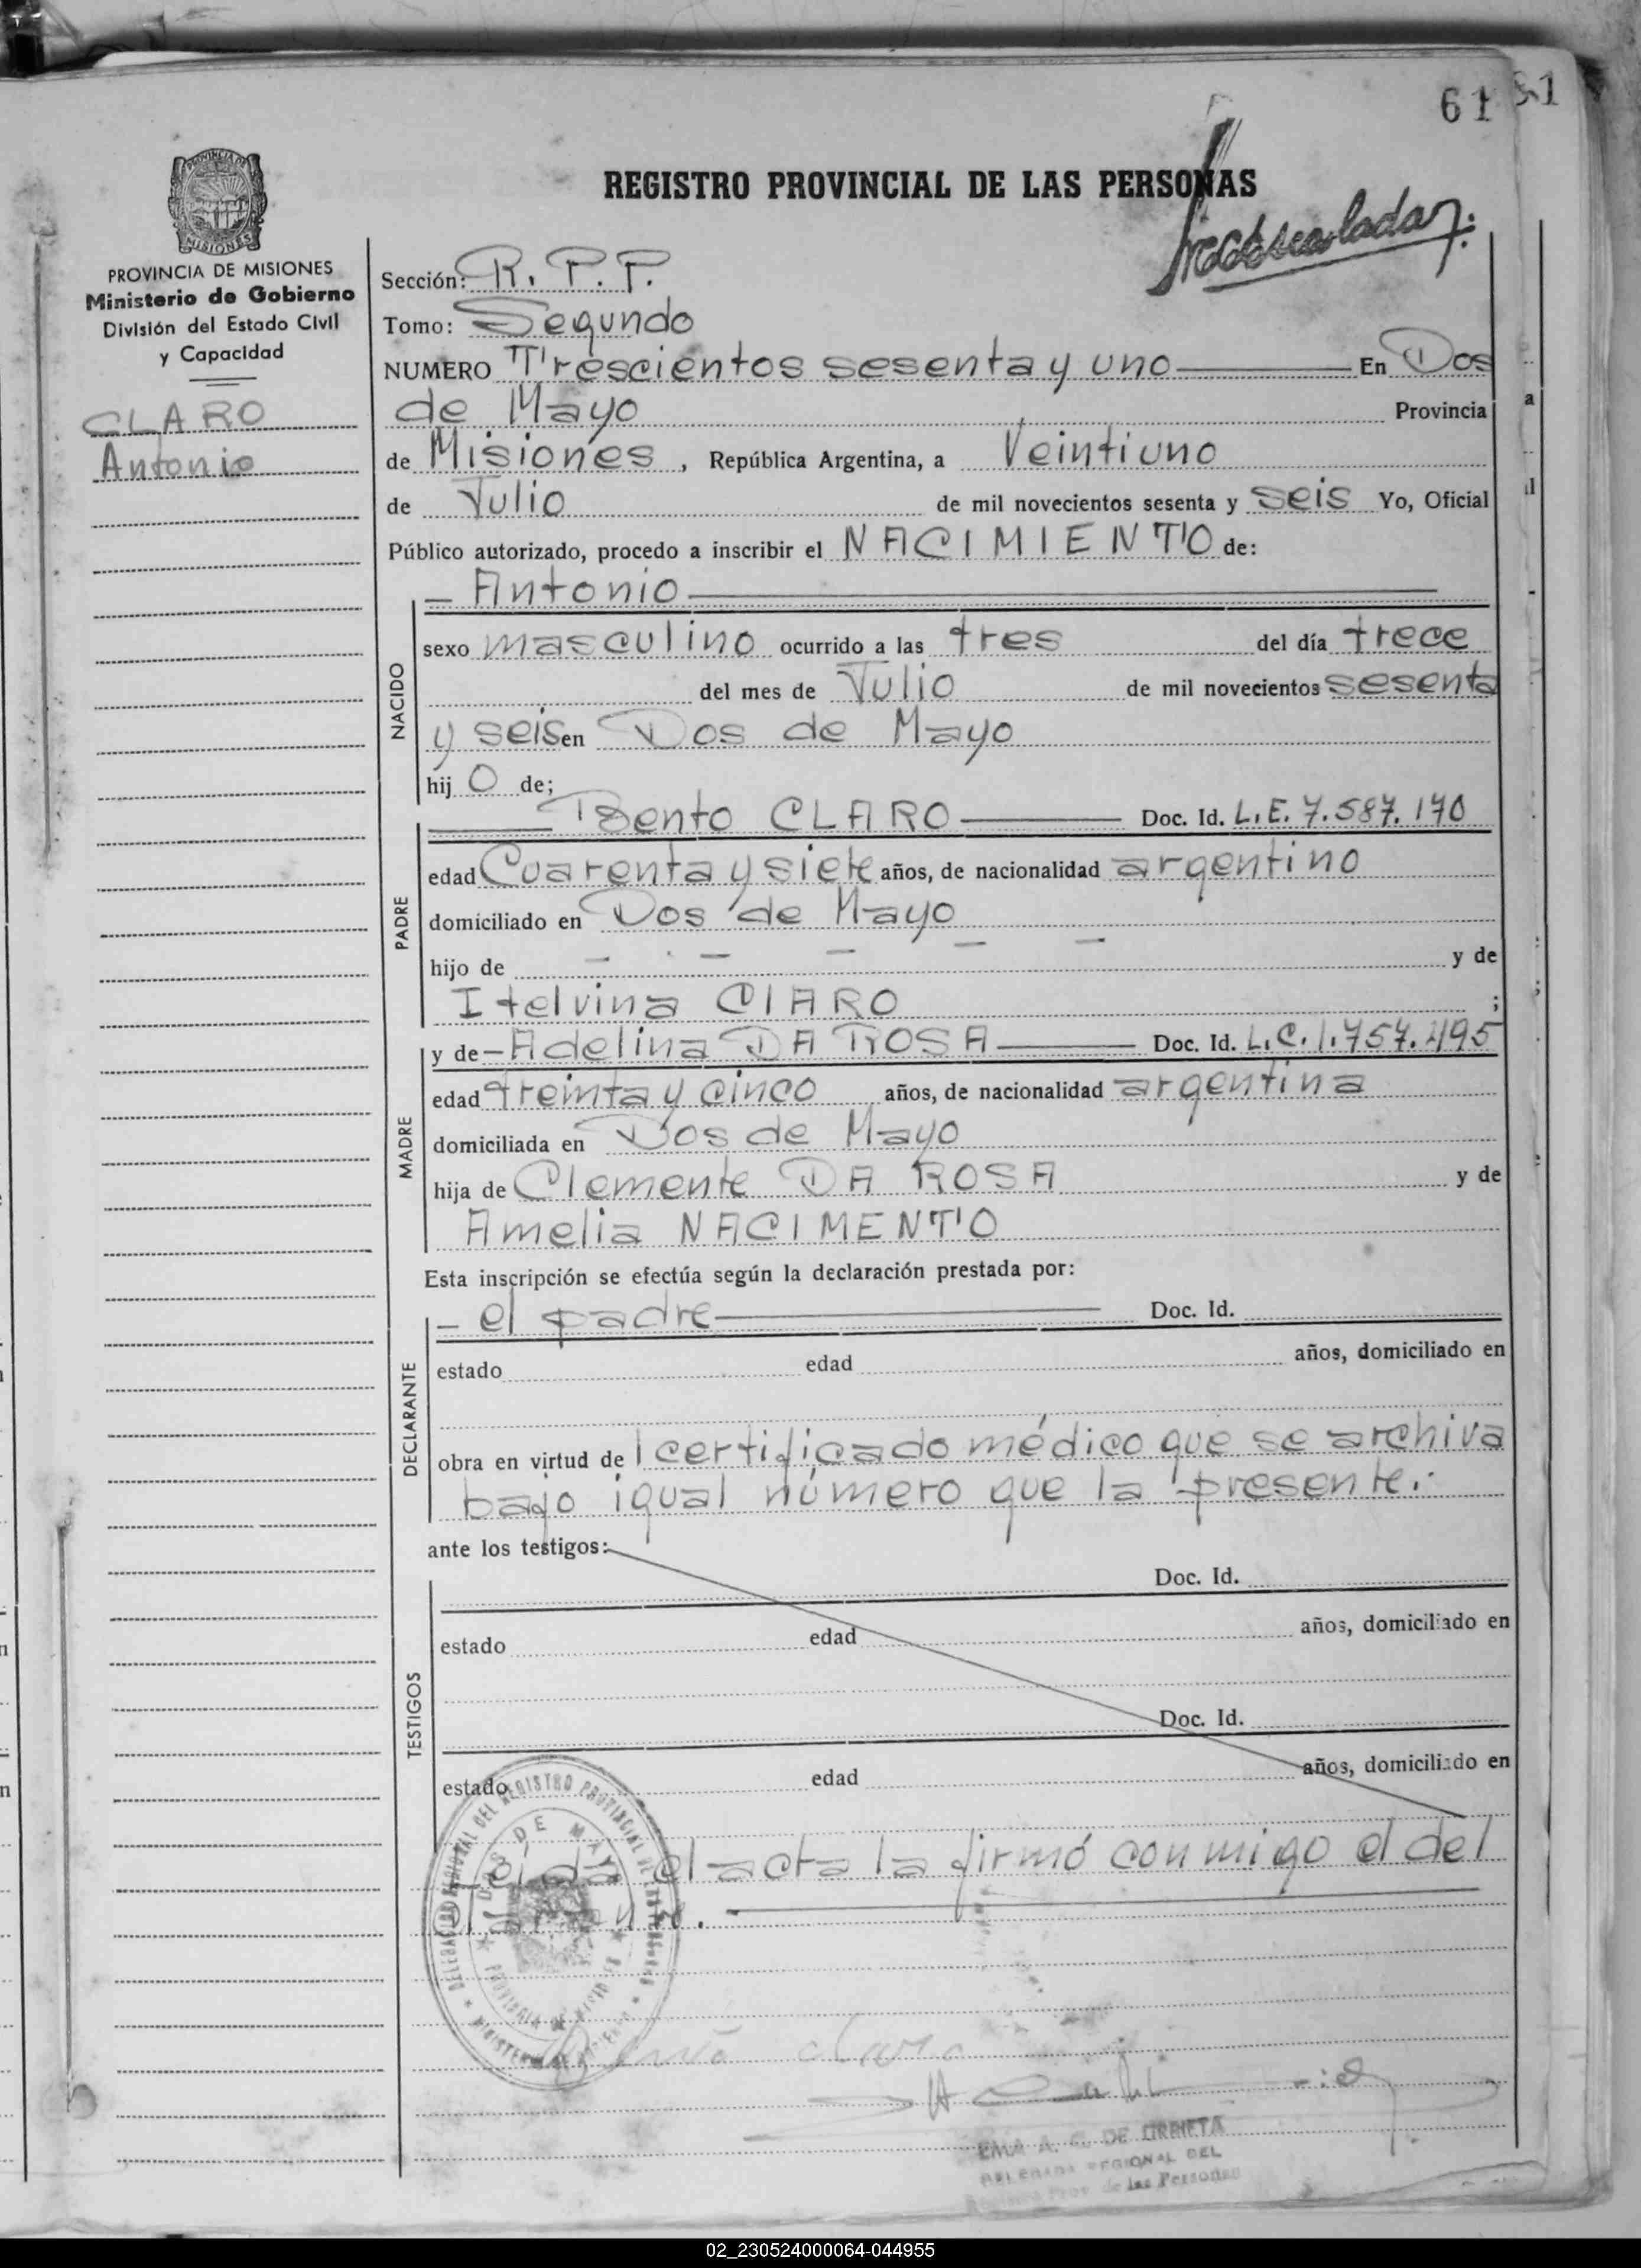 61
REGISTRO PROVINCIAL DE LAS PERSONAS
PROVINCIA DE MISIONES
MISIONES
PROVINCIA DE MISIONES
Ministerio de Gobierno
División del Estado Civil
y Capacidad
CLARO
Antonio
Sección: R. P. P.
Tomo: Segundo
NUMERO Trescientos sesenta y uno En Dos
de Mayo Provincia
de Misiones, República Argentina, a Veintiuno
de Julio de mil novecientos sesenta y seis Yo, Oficial
Público autorizado, procedo a inscribir el NACIMIENTO de:
- Antonio
NACIDO
sexo masculino ocurrido a las tres del día trece
del mes de Julio de mil novecientos sesenta
y seis en Dos de Mayo
hij o de;
PADRE
Bento CLARO Doc. Id. L.E. 7.587.170
edad Cuarenta y siete años, de nacionalidad argentino
domiciliado en Dos de Mayo
hijo de - - - - - y de
Itelvina ClARO ;
MADRE
y de - Adelina DA ROSA Doc. Id. L.C. 1.757.495
edad treinta y cinco años, de nacionalidad argentina
domiciliada en Dos de Mayo
hija de Clemente DA ROSA y de
Amelia NACIMENTO
Esta inscripción se efectúa según la declaración prestada por:
DECLARANTE
- el padre Doc. Id.
estado edad años, domiciliado en
obra en virtud de l certificado médico que se archiva
bajo igual número que la presente.
ante los testigos:
TESTIGOS
Doc. Id.
estado edad años, domiciliado en
Doc. Id.
estado edad años, domiciliado en
el acta la firmó conmigo el del
DELEGACION REGIONAL DEL REGISTRO PROVINCIAL DE LAS PERSONAS
DOS DE MAYO
PROVINCIA DE MISIONES
MINISTERIO DE GOBIERNO
Claro
EMA A. C. DE URRIETA
DELEGADA REGIONAL DEL
Registro Prov. de las Personas
02_230524000064-044955